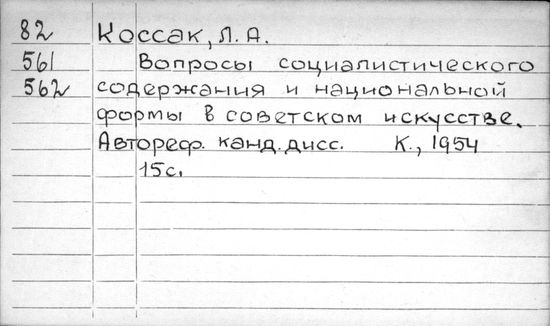 82 Коссак, Л. А.
561 Вопросы социалистического
562 содержания и национальной
формы в советском искусстве.
Автореф. канд. дисс. К., 1954
15с.